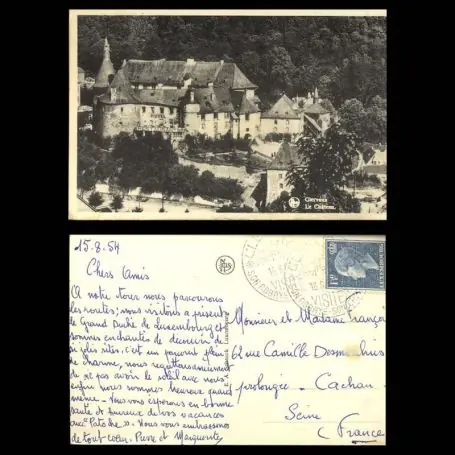 Clervaux
Le Château
15.8.54
Chers Amis
A notre tour nous parcourons
les routes; nous visitons a présent
le Grand Duché de Luxembourg et
sommes enchantés de découvrir de
si jolis sites, c'est un pays plein
de charme, nous regrettons
de ne pas avoir le soleil avec nous,
enfin nous sommes heureux quand
même - Nous vous espérons en bonne
santé et heureux de vos vacances
avec "Patoche". Nous vous embrassons
de tout cœur. Pierre et Marguerite
Monsieur et Madame François
62 rue Camille Desmoulins
prolongée - Cachan
Seine
(France
VISITE